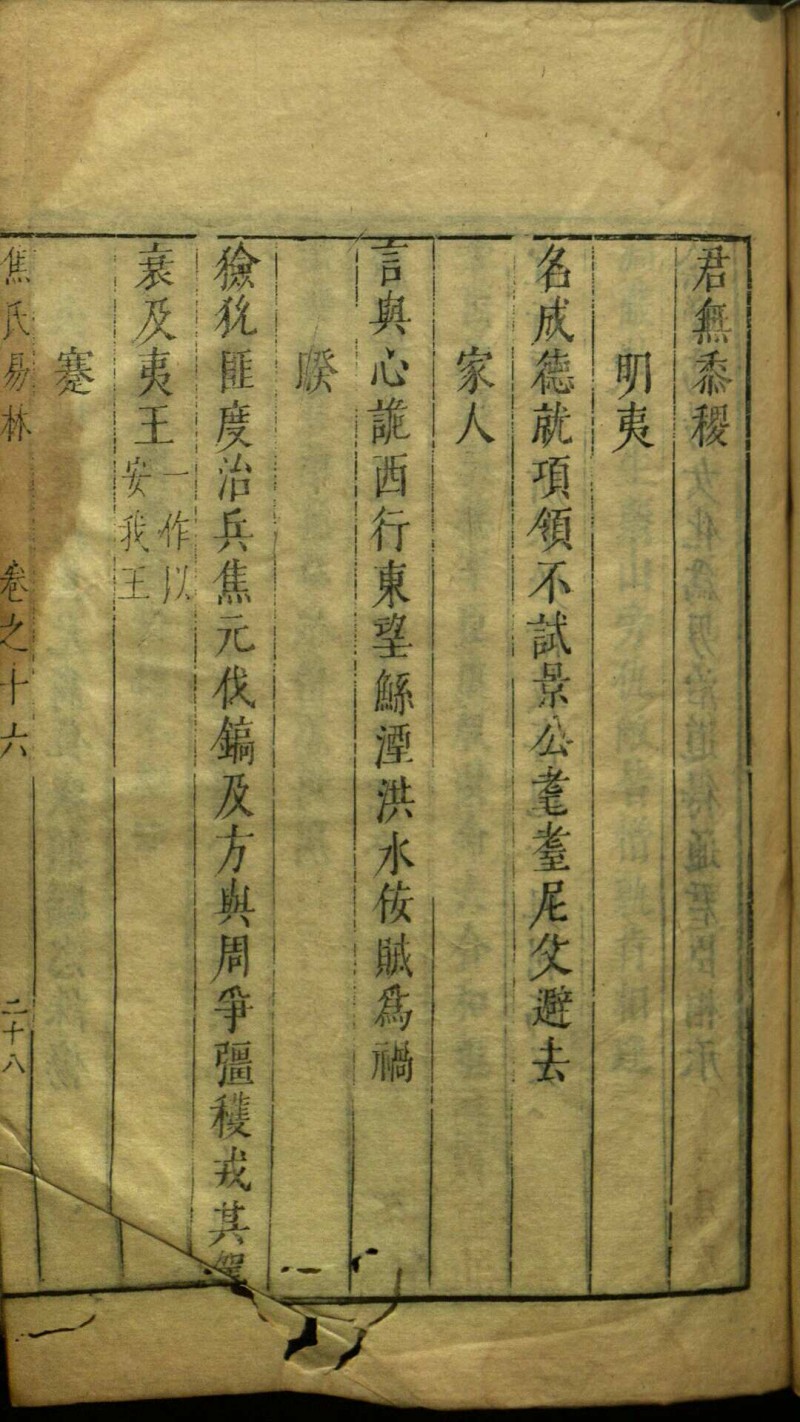 君無黍稷
明夷
名成德就項領不試景公耄耋尼父避去
家人
言與心詭西行東望鯀湮洪水佞賊為禍
睽
獫狁匪度治兵焦元伐鎬及方與周爭彊穫戎其駕
衰及夷王一作以安我王
蹇
焦氏易林 卷之十六 二十八